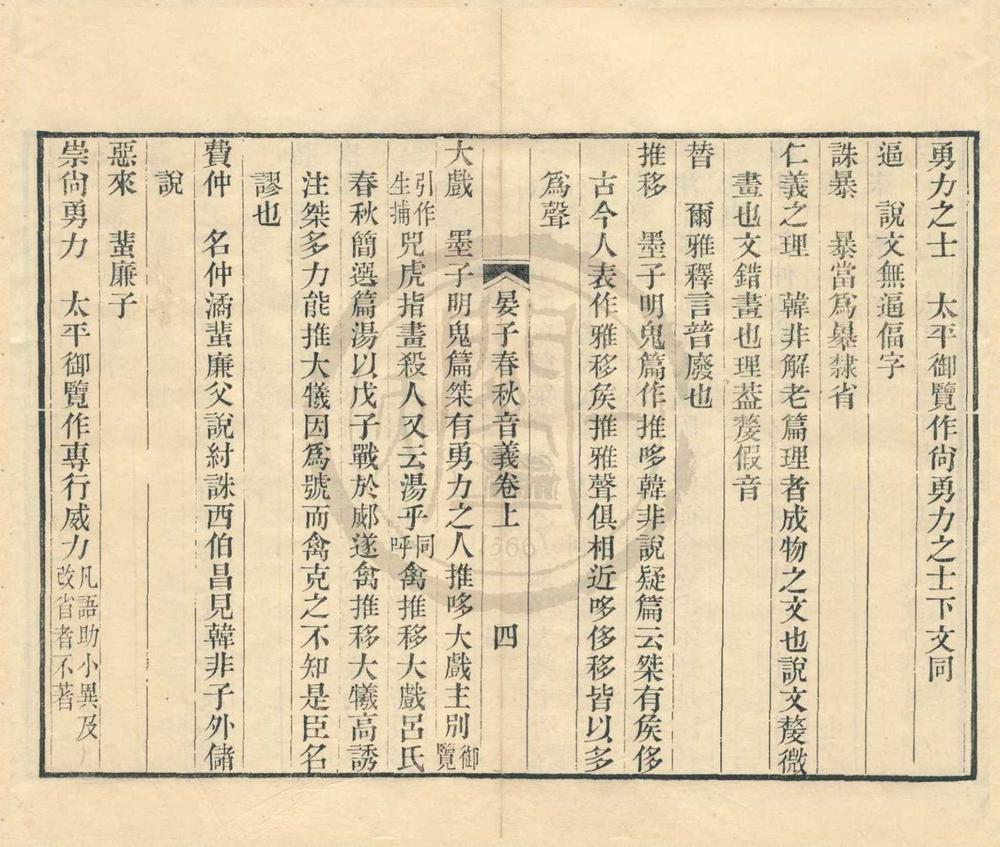 勇力之士　太平御覽作尙勇力之士下文同
逼　說文無逼偪字
誅暴　暴當爲㬥隸省
仁義之理　韓非解老篇理者成物之文也說文釐微
畫也文錯畫也理葢釐假音
朁　爾雅釋言朁廢也
推移　墨子明鬼篇作推哆韓非說疑篇云桀有矦侈
古今人表作雅移矦推雅聲俱相近哆侈移皆以多
爲聲
晏子春秋音義卷上　四
大戲　墨子明鬼篇桀有勇力之人推哆大戲主別御覽
引作生捕兕虎指畫殺人又云湯乎同呼禽推移大戲呂氏
春秋簡選篇湯以戊子戰於郕遂禽推移大犧高誘
注桀多力能推大犧因爲號而禽克之不知是臣名
謬也
費仲　名仲潏蜚廉父說紂誅西伯昌見韓非子外儲
說
惡來　蜚廉子
崇尙勇力　太平御覽作專行威力凡語助小異及改省者不著